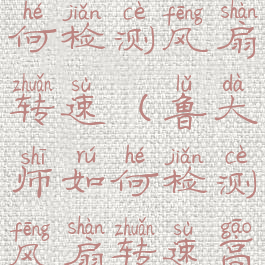 hé jiǎn cè fēng shàn
何检测风扇
zhuǎn sù lǔ dà
转速(鲁大
shī rú hé jiǎn cè
师如何检测
fēng shàn zhuǎn sù gāo
风扇转速高